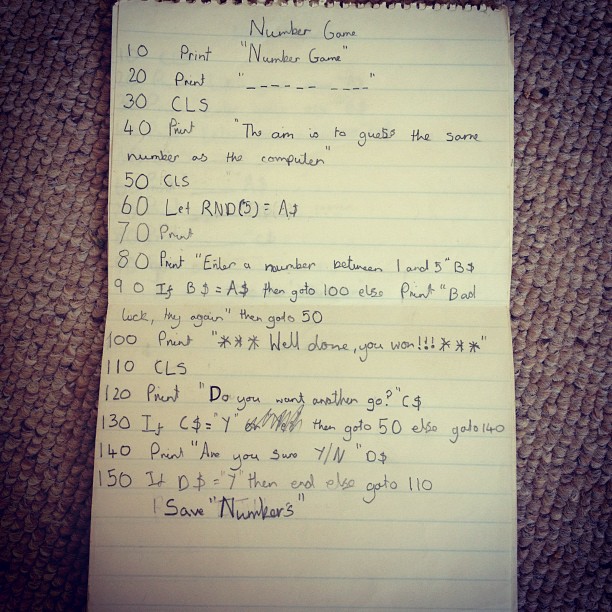 Number Game
10 Print "Number Game"
20 Print "______ ____"
30 CLS
40 Print "The aim is to guess the same
number as the computer"
50 CLS
60 Let RND(5) = A$
70 Print
80 Print "Enter a number between 1 and 5" B$
90 If B$ = A$ then goto 100 else Print "Bad
luck, try again" then goto 50
100 Print "*** Well done, you won!!!***"
110 CLS
120 Print "Do you want another go?" C$
130 If C$ = "Y" then goto 50 else goto 140
140 Print "Are you sure Y/N" D$
150 If D$ = "Y" then end else goto 110
Save "Numbers"